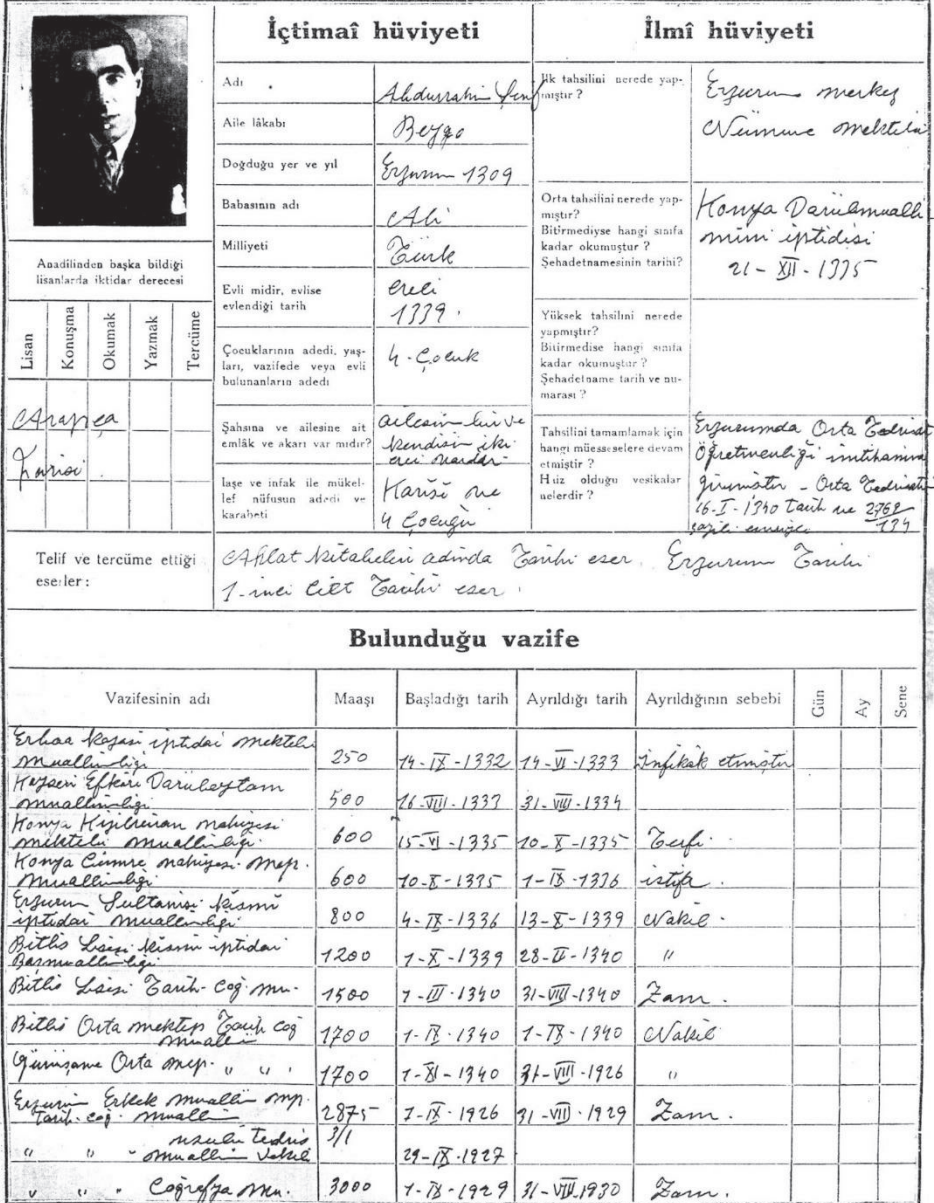 İçtimaî hüviyeti
İlmî hüviyeti
Adı
Abdurrahim Şerif
Aile lâkabı
Beygo
Doğduğu yer ve yıl
Erzurum 1309
Babasının adı
Ali
Milliyeti
Türk
Evli midir, evlise
evlendiği tarih
evli
1339.
Çocuklarının adedi, yaş-
ları, vazifede veya evli
bulunanların adedi
4 - Çocuk
Şahsına ve ailesine ait
emlâk ve akarı var mıdır?
ailesinin bir ve
kendisin iki
evi vardır
İaşe ve infak ile mükel-
lef nüfusun adedi ve
karabeti
Karısı ve
4 Çocuğu
İlk tahsilini nerede yap-
mıştır ?
Erzurum merkez
Nümune mektebi
Orta tahsilini nerede yap-
mıştır?
Bitirmediyse hangi sınıfa
kadar okumuştur ?
Şehadetnamesinin tarihi?
Konya Darülmualli-
mini iptidisi
21 - XII - 1335
Yüksek tahsilini nerede
yapmıştır?
Bitirmedise hangi sınıfa
kadar okumuştur ?
Şehadetname tarih ve nu-
marası ?
Tahsilini tamamlamak için
hangi müesseselere devam
etmiştir ?
Haiz olduğu vesikalar
nelerdir ?
Erzurumda Orta Tedrisat
Öğretmenliği imtihanına
girmiştir - Orta Tedrisatı
16-I-1340 tarih ve 2762
134
Anadilinden başka bildiği
lisanlarda iktidar derecesi
Lisan
Konuşma
Okumak
Yazmak
Tercüme
Arapça
Farisi
Telif ve tercüme ettiği
eserler :
Ahlat Kitabeleri adında Tarihi eser. Erzurum Tarihi
1-inci Cilt Tarihi eser.
Bulunduğu vazife
Vazifesinin adı Maaşı Başladığı tarih Ayrıldığı tarih Ayrıldığının sebebi Gün Ay Sene
Erbaa kazası iptidai mektebi
muallimliği 250 14-IX-1332 14-VI-1333 İnfikâk etmiştir
Kayseri Darüleytam
muallimliği 500 16-VIII-1333 31-VIII-1334
Konya nahiyesi
mektebi muallimliği 600 15-VI-1335 10-X-1335 Terfi.
Konya Çumra nahiyesi mep.
muallimliği 600 10-X-1335 1-IX-1336 istifa.
Erzurum Sultanisi kısmı
iptidai muallimliği 800 4-IX-1336 13-X-1339 Nakil.
Bitlis Lisesi kısmı iptidai
Başmuallimliği 1200 1-X-1339 28-II-1340 "
Bitlis Lisesi Tarih-Coğ. mu. 1500 1-III-1340 31-VIII-1340 Zam.
Bitlis Orta mektep Tarih Coğ
muallimi 1700 1-IX-1340 1-IX-1340 Nakil
Gümüşane Orta mep. " " . 1700 1-XI-1340 31-VIII-1926 "
Erzurum Erkek Muallim mp.
Tarih-coğ. muallimi 2875 1-IX-1926 31-VIII-1929 Zam.
usulü tedris 3/1
" " - muallim Vekil 29-IX-1927
" " " Coğrafya mu. 3000 1-IX-1929 31-VIII.1930 Zam.